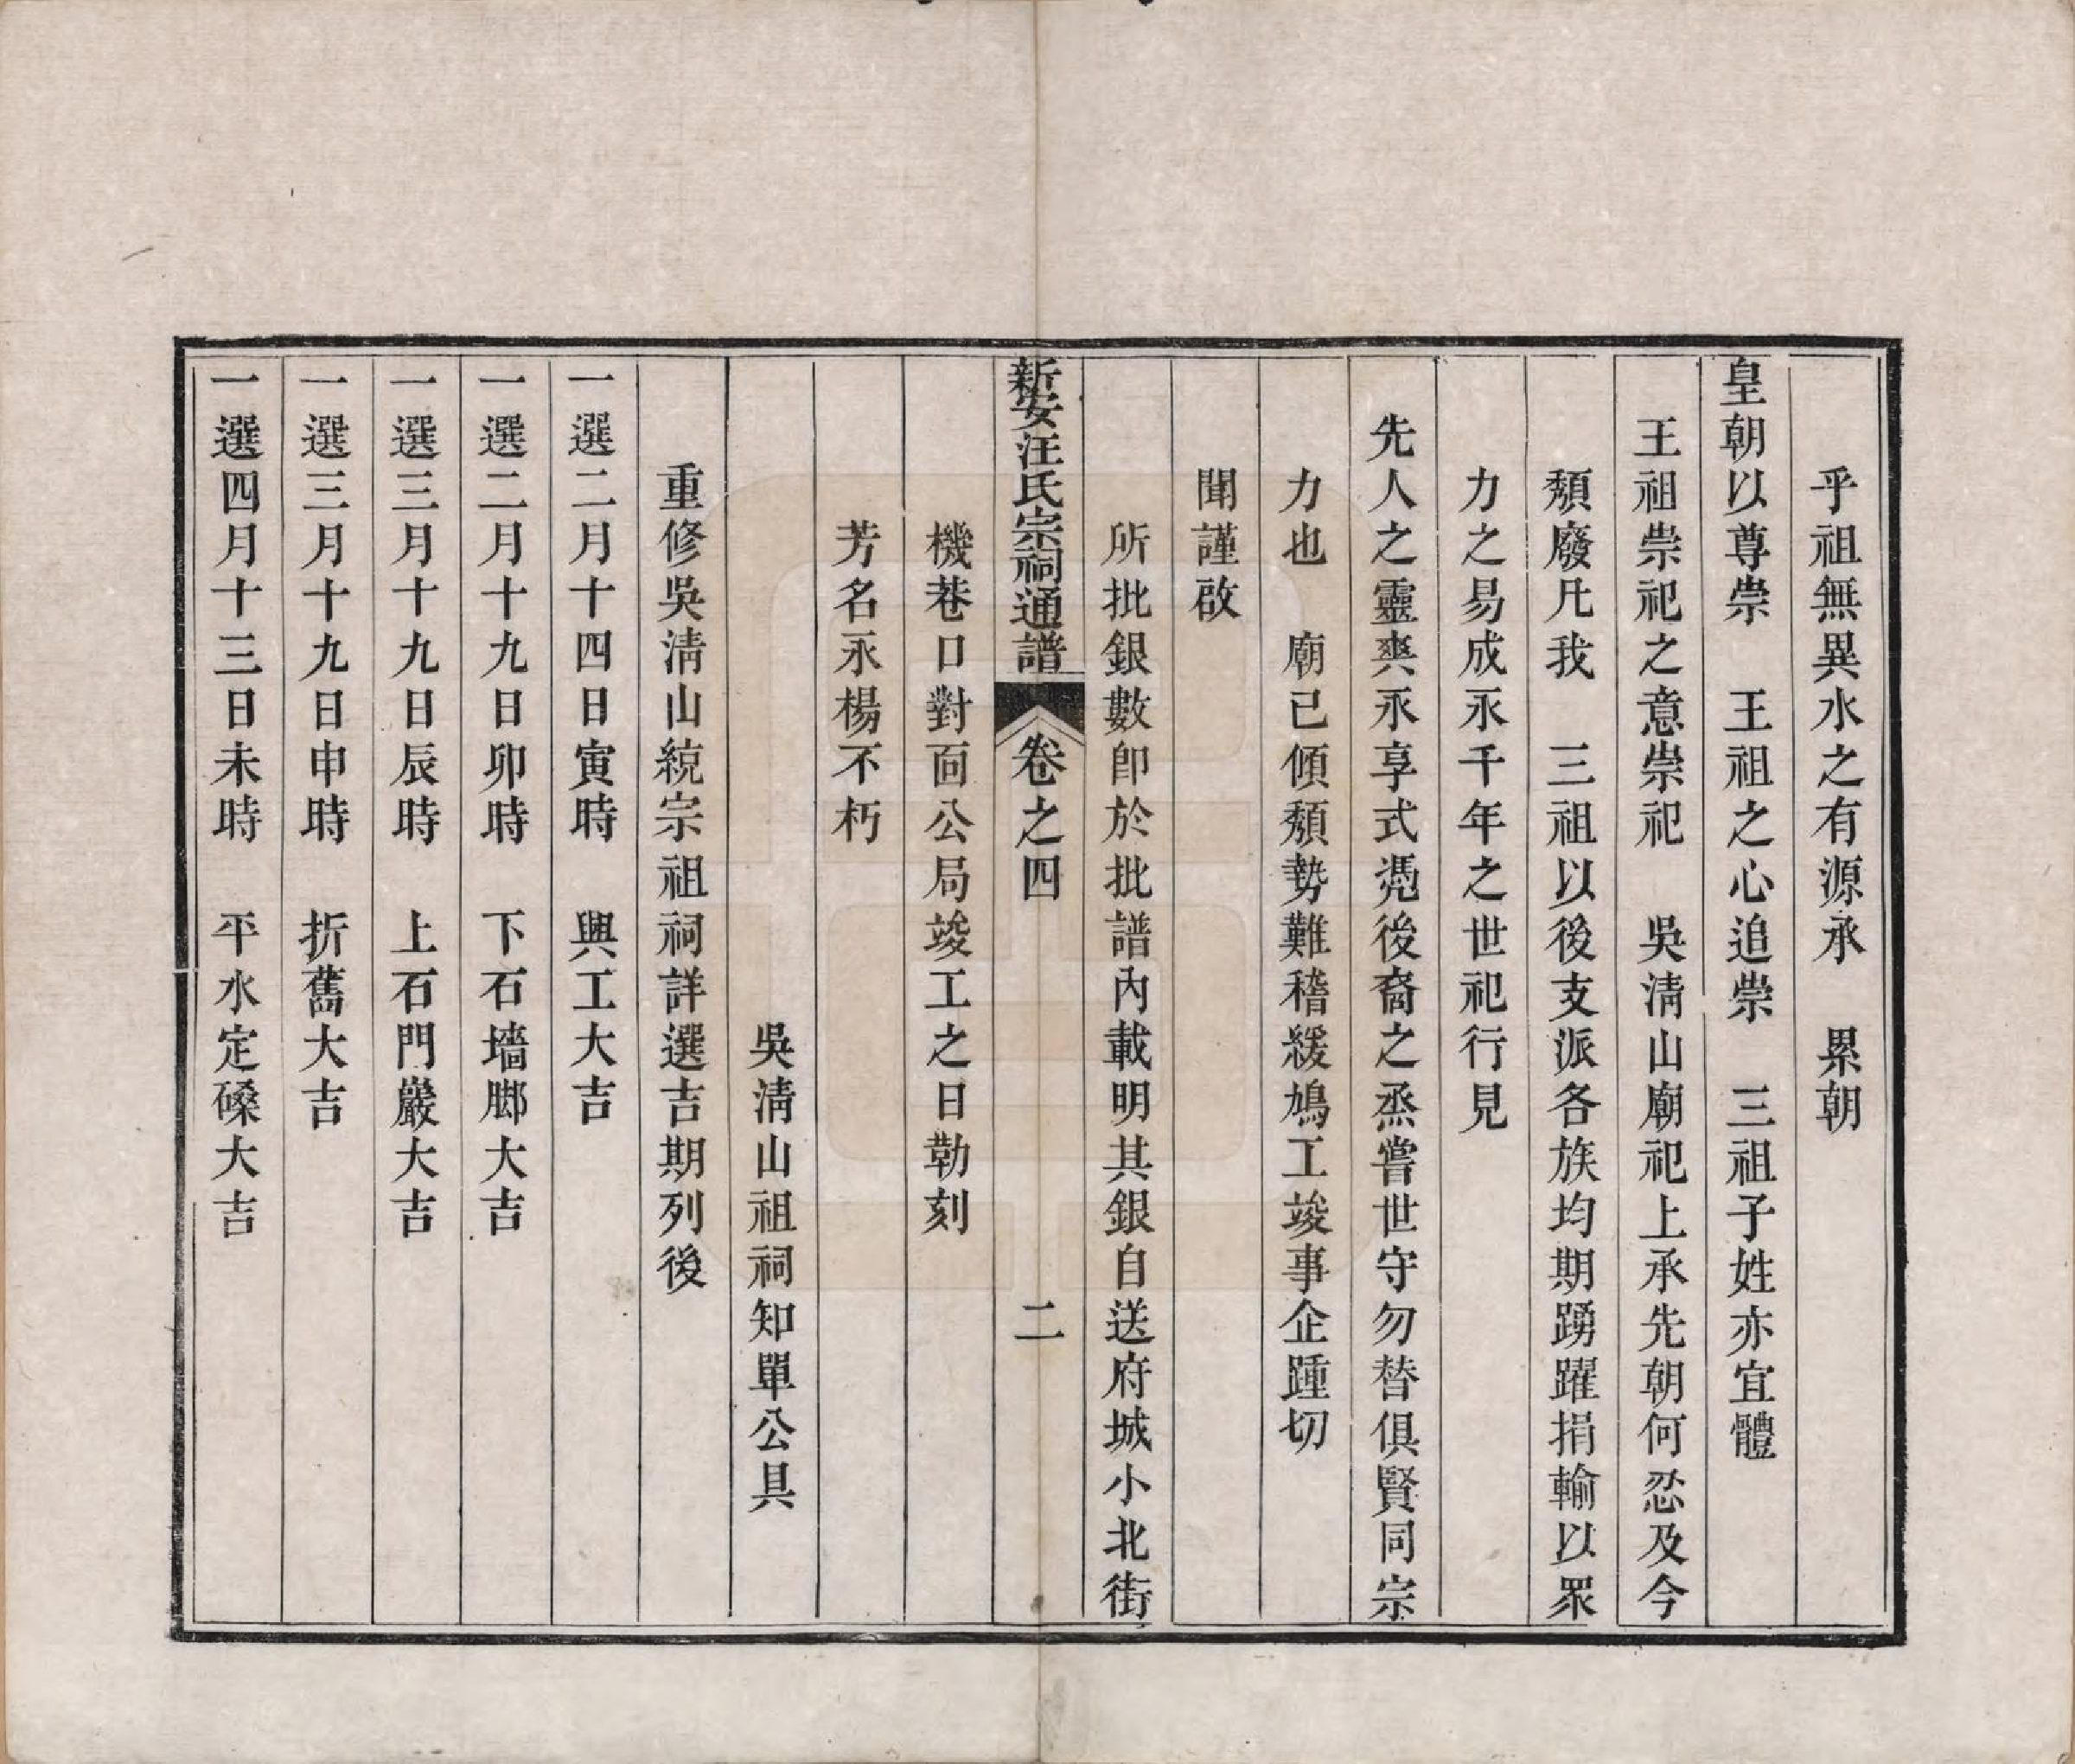 乎祖無異水之有源承　累朝
皇朝以尊崇　王祖之心追崇　三祖子姓亦宜體
王祖崇祀之意崇祀　吳清山廟祀上承先朝何忍及今
頹廢凡我　三祖以後支派各族均期踴躍捐輸以眾
力之易成永千年之世祀行見
先人之靈爽永享式憑後裔之烝嘗世守勿替俱賢同宗
力也　廟已傾頹勢難稽緩鳩工竣事企踵切
聞謹啟
所批銀數卽於批譜內載明其銀自送府城小北街
新安汪氏宗祠通譜　卷之四　二
機巷口對面公局竣工之日勒刻
芳名永楊不朽
吳清山祖祠知單公具
重修吳清山統宗祖祠詳選吉期列後
一選二月十四日寅時　興工大吉
一選二月十九日卯時　下石墻脚大吉
一選三月十九日辰時　上石門巖大吉
一選三月十九日申時　折舊大吉
一選四月十三日未時　平水定磉大吉